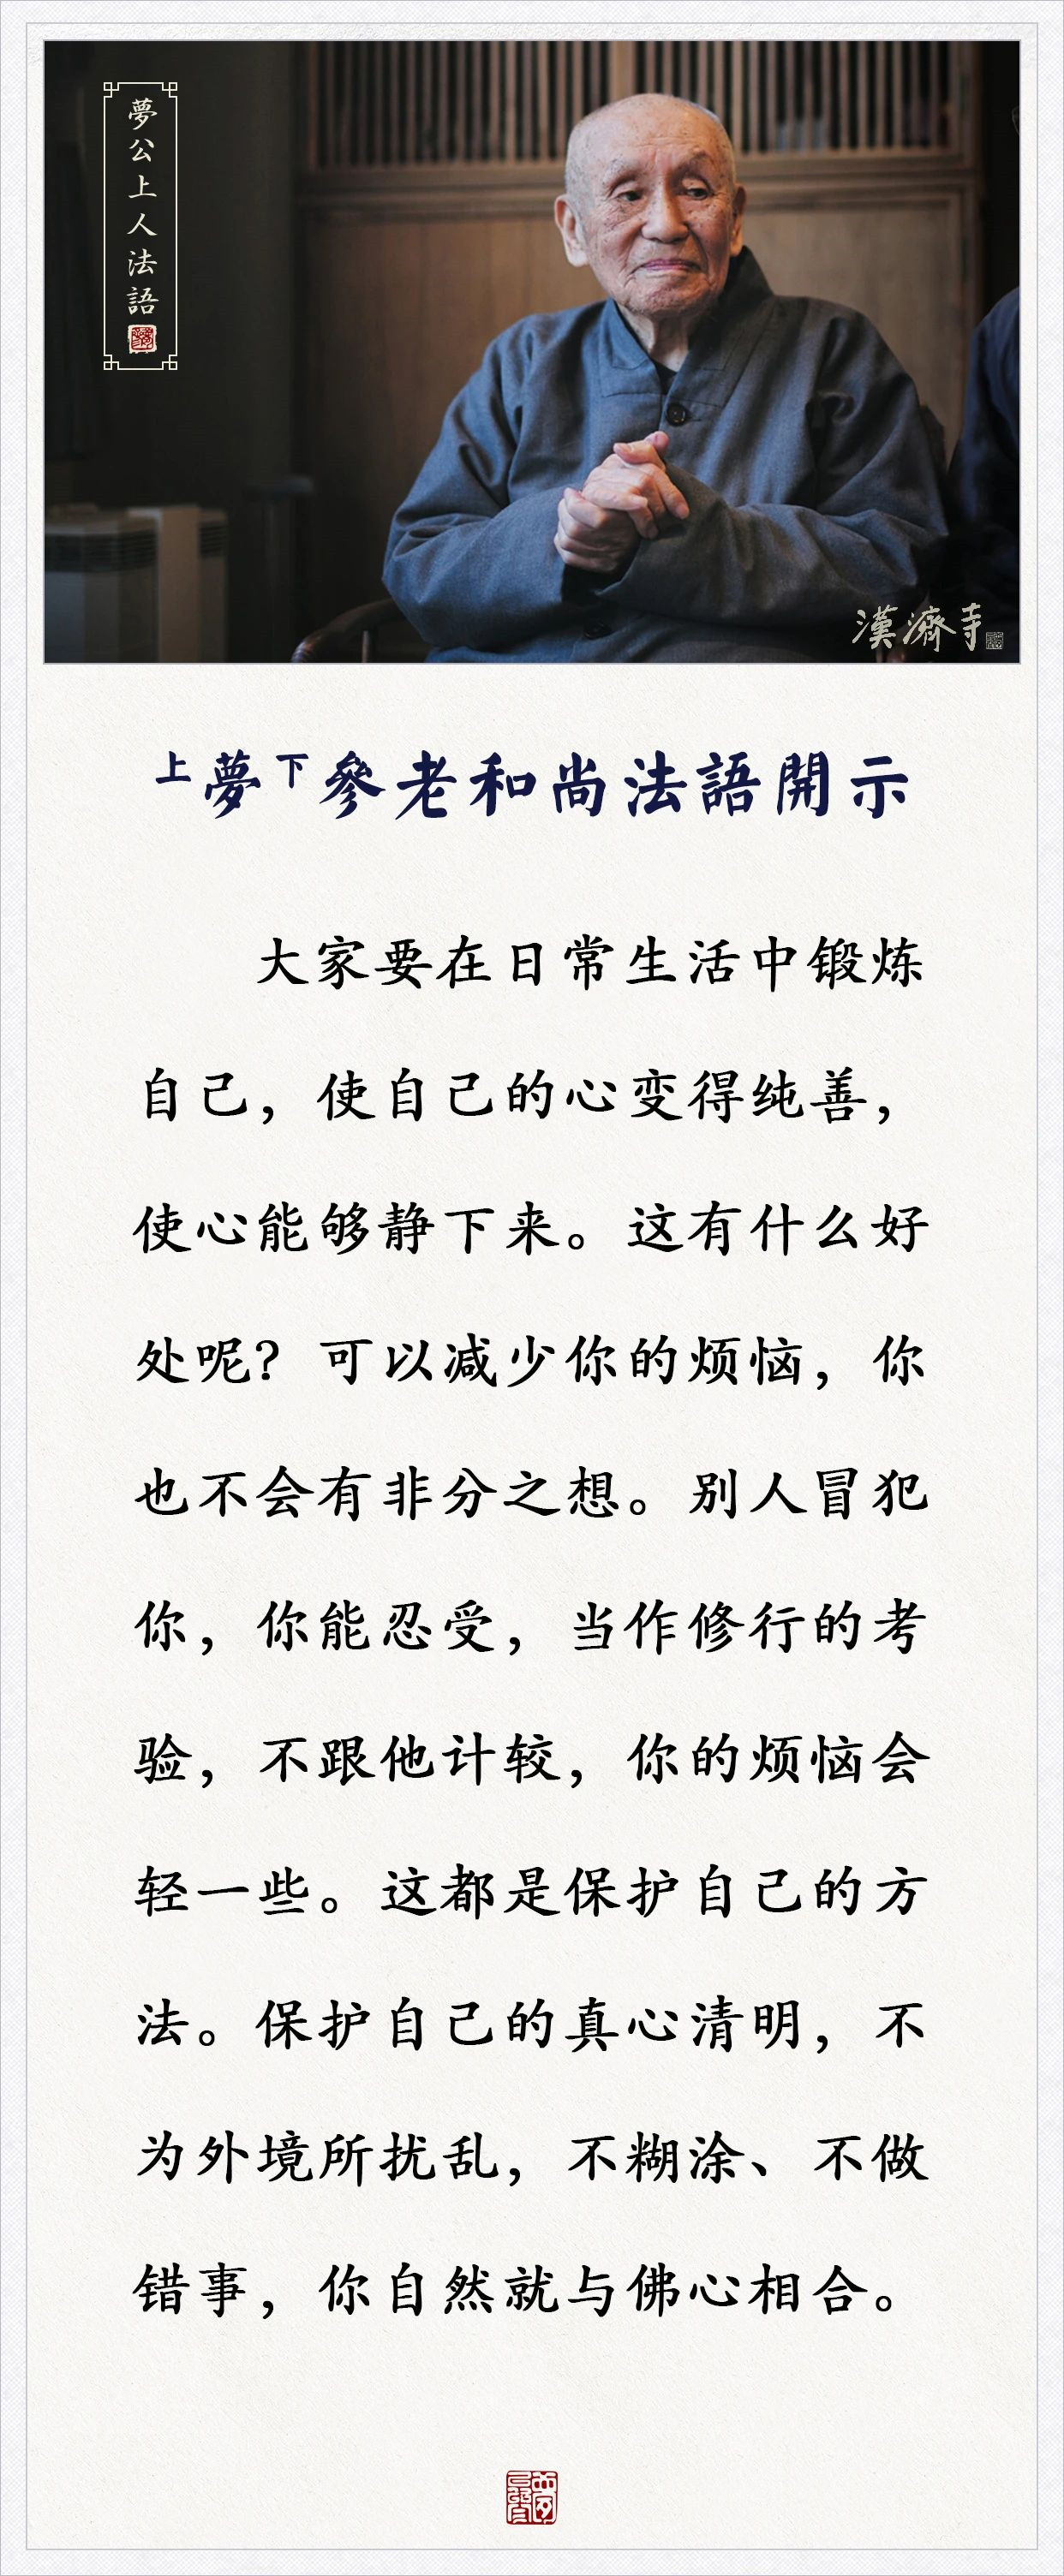 夢公上人法語
漢濟寺
上夢下參老和尚法語開示
大家要在日常生活中锻炼
自己，使自己的心变得纯善，
使心能够静下来。这有什么好
处呢？可以减少你的烦恼，你
也不会有非分之想。别人冒犯
你，你能忍受，当作修行的考
验，不跟他计较，你的烦恼会
轻一些。这都是保护自己的方
法。保护自己的真心清明，不
为外境所扰乱，不糊涂、不做
错事，你自然就与佛心相合。